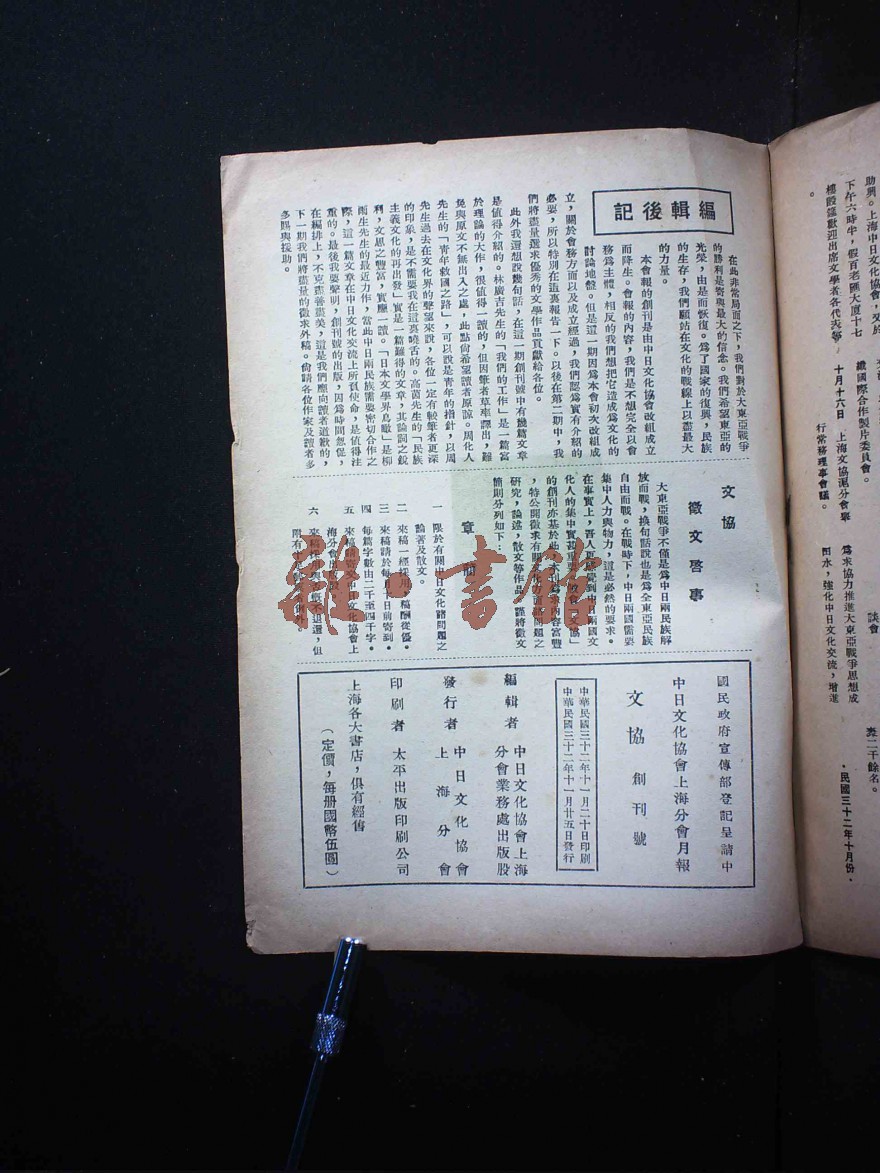 編輯後記
在此非常局面之下，我們對於大東亞戰爭
的勝利是寄與最大的信念。我們希望東亞的
光榮，由是而恢復。為了國家的復興，民族
的生存，我們願站在文化的戰線上以盡最大
的力量。
本會報的創刊是由中日文化協會改組成立
而降生。會報的內容，我們是不想完全以會
務爲主體，相反的我們想把它造成爲文化的
討論地盤。但是這一期因爲本會初次改組成
立，關於會務方面以及成立經過，我們認爲實有介紹的
必要，所以特別在這裏報告一下。以後在第二期中，我
們將盡量選求優秀的文學作品貢獻給各位。
此外我還想說幾句話，在這一期創刊號中有幾篇文章
是値得介紹的。林廣吉先生的「我們的工作」是一篇富
於理論的大作，很値得一讀的，但因筆者草率譯出，難
免與原文不無出入之處，此點尙希望讀者原諒。周化人
先生的「靑年救國之路」，可以說是靑年的指針，以周
先生過去在文化界的聲望來說，各位一定有較筆者更深
的印象，是不需要我在這裏嘵舌的。高茵先生的「民族
主義文化的再出發」實是一篇難得的文章，其論調之銳
利，文思之豐富，實應一讀。「日本文學界鳥瞰」是柳
雨生先生的最近力作，當此中日兩民族需要密切合作之
際，這一篇文章在中日文化交流上所負使命，是値得注
重的。最後我要聲明，創刊號的出版，因爲時間怱促，
在編排上，不克盡善盡美，這是我們應向讀者道歉的，
下一期我們將盡量的徵求外稿。尙請各位作家及讀者多
多賜與援助。
文協
徵文啓事
大東亞戰爭不僅是爲中日兩民族解
放而戰，換句話說也是爲全東亞民族
自由而戰。在戰時下，中日兩國需要
集中人力與物力，這是必然的要求。
在事實上，吾人更感覺到中日兩國文
化人的集中實甚重要，
的創刊亦基於此，本刊爲內容富豐
，特公開徵求有關文化方面諸問題之
研究，論述，散文等作品，謹將徵文
簡則分列如下：
章則
一　限於有關中日文化諸問題之
論著及散文。
二　來稿一經採用，稿酬從優。
三　來稿請於每月十日前寄到。
四　每篇字數由二千至四千字。
五　來稿請寄交中日文化協會上
海分會出版股
六　來稿採用與否概不退還，但
附有
國民政府宣傳部登記呈請中
中日文化協會上海分會月報
文協創刊號
中華民國三十二年十一月二十日印刷
中華民國三十二年十一月廿五日發行
編輯者　中日文化協會上海
分會業務處出版股
發行者　中日文化協會
上海分會
印刷者　太平出版印刷公司
上海各大書店，俱有經售
（定價，每册國幣伍圓）
助興。上海中日文化協會，又於
下午六時半，假百老匯大廈十七
樓設筵歡迎出席文學者各代表等
。
織國際合作製片委員會。
十月十六日　上海文協滬分會舉
行常務理事會議。
談會
爲求協力推進大東亞戰爭思想成
田水，強化中日文化交流，增進
二千餘名。
・民國三十二年十月份・
雜書館